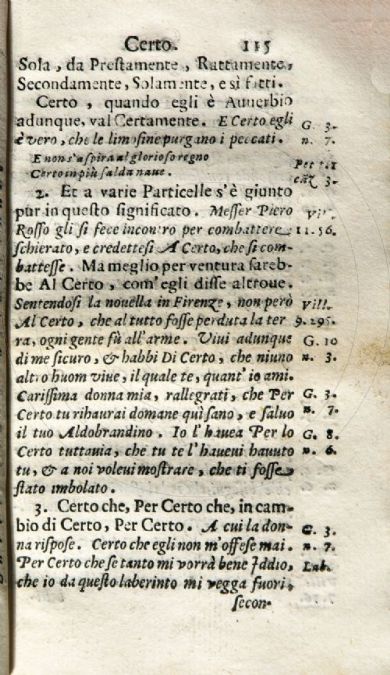 Certo. 115
Sola, da Prestamente, Rattamente,
Secondamente, Solamente, e sì fatti.
Certo, quando egli è Auuerbio
adunque, val Certamente. E Certo egli
è vero, che le limosine purgano i peccati.
G. 3.
n. 7.
E non s'aspira al glorioso regno
Certo in più salda naue.
2. Et a varie Particelle s'è giunto
pur in questo significato. Messer Piero
Rosso gli si fece incontro per combattere
schierato, e credettesi A Certo, che si com-
battesse. Ma meglio per ventura fareb-
be Al Certo, com'egli disse altroue.
11. 56.
Sentendosi la nouella in Firenze, non però
Al Certo, che al tutto fosse perduta la ter
ra, ogni gente fù all'arme. Viui adunque
di me sicuro, & habbi Di Certo, che niuno
altro huom viue, il quale te, quant'io ami.
Vill.
9. 295.
G. 10
n. 3.
Carissima donna mia, rallegrati, che Per
Certo tu rihaurai domane quì sano, e saluo
il tuo Aldobrandino. Io l'hauea Per lo
Certo tuttauia, che tu te l'haueui hauuto
tu, & a noi voleui mostrare, che ti fosse
stato imbolato.
G. 3.
n. 7.
G. 8.
n. 6.
3. Certo che, Per Certo che, in cam-
bio di Certo, Per Certo. A cui la don-
na rispose. Certo che egli non m'offese mai.
Per Certo che se tanto mi vorrà bene Iddio,
che io da questo laberinto mi vegga fuori,
G. 3.
n. 7.
Lab.
secon-